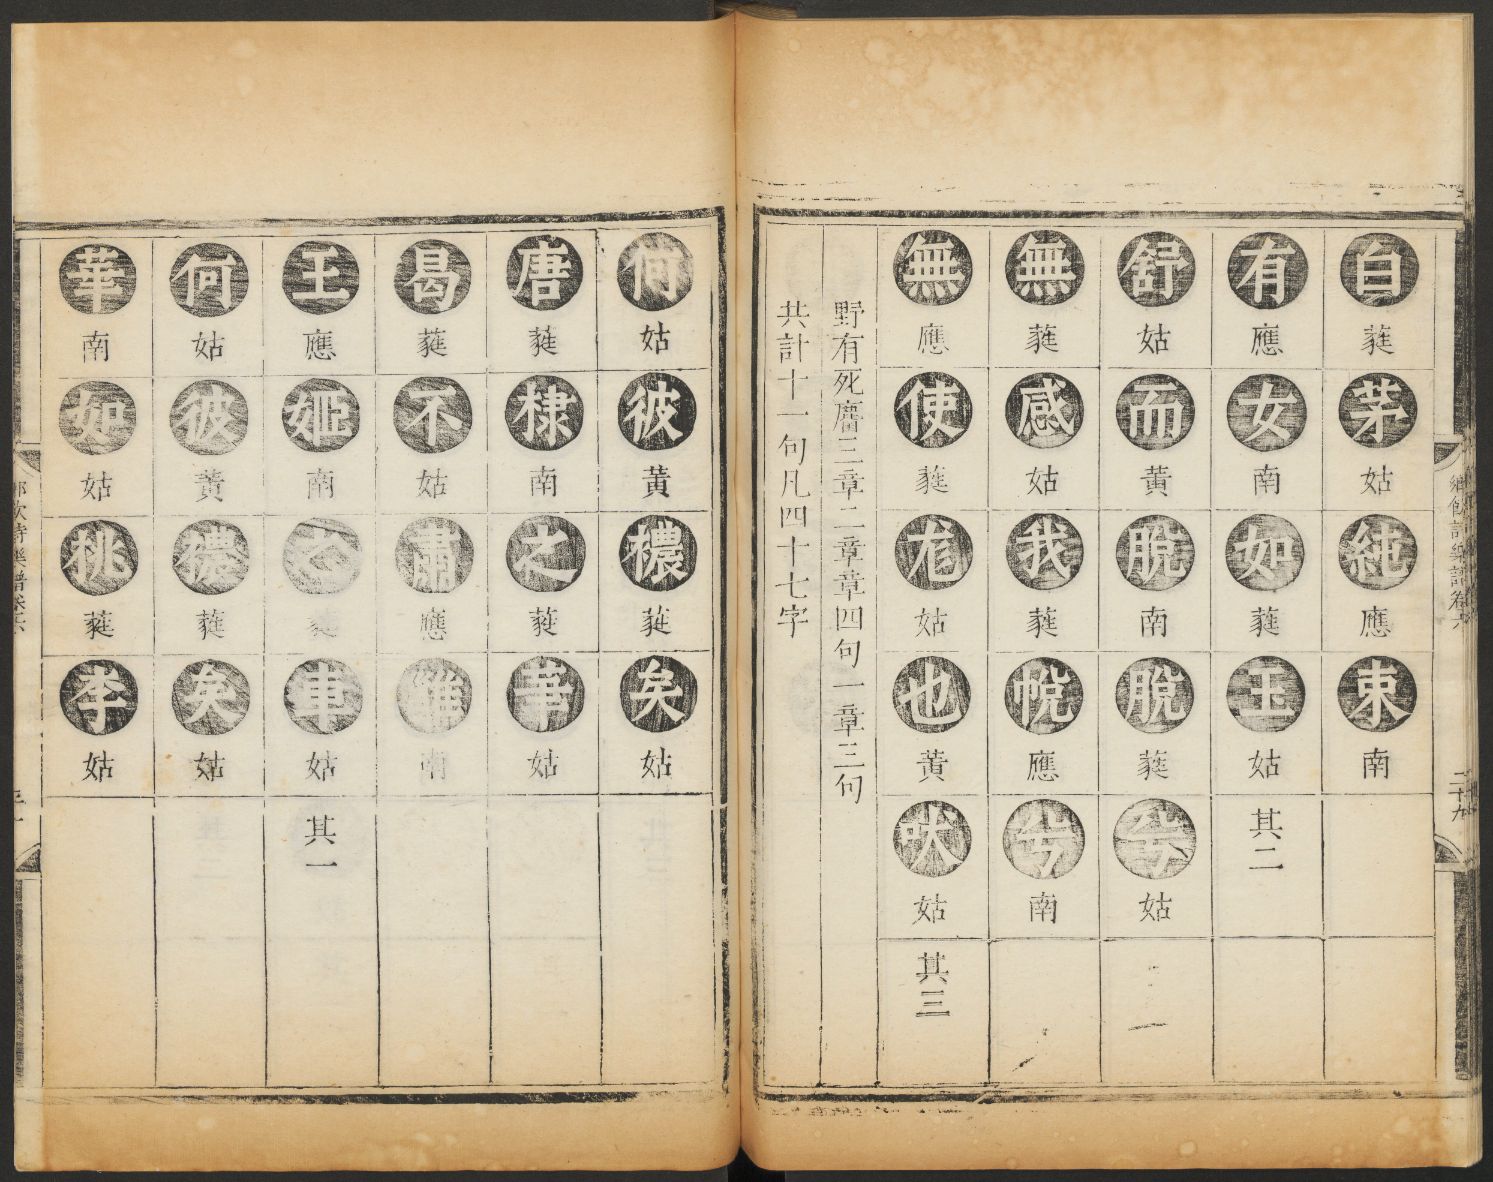 鄉飲詩樂譜卷六 二十九
自蕤茅姑純應束南
有應女南如蕤玉姑其二
舒姑而黃脫南脫蕤兮姑
無蕤感姑我蕤帨應兮南
無應使蕤尨姑也黃吠姑其三
野有死麕三章二章章四句一章三句
共計十一句凡四十七字
何姑彼黃襛蕤矣姑
唐蕤棣南之蕤華姑
曷蕤不姑肅應雝南
王應姬南之蕤車姑其一
何姑彼黃襛蕤矣姑
華南如姑桃蕤李姑
鄉飲詩樂譜卷六